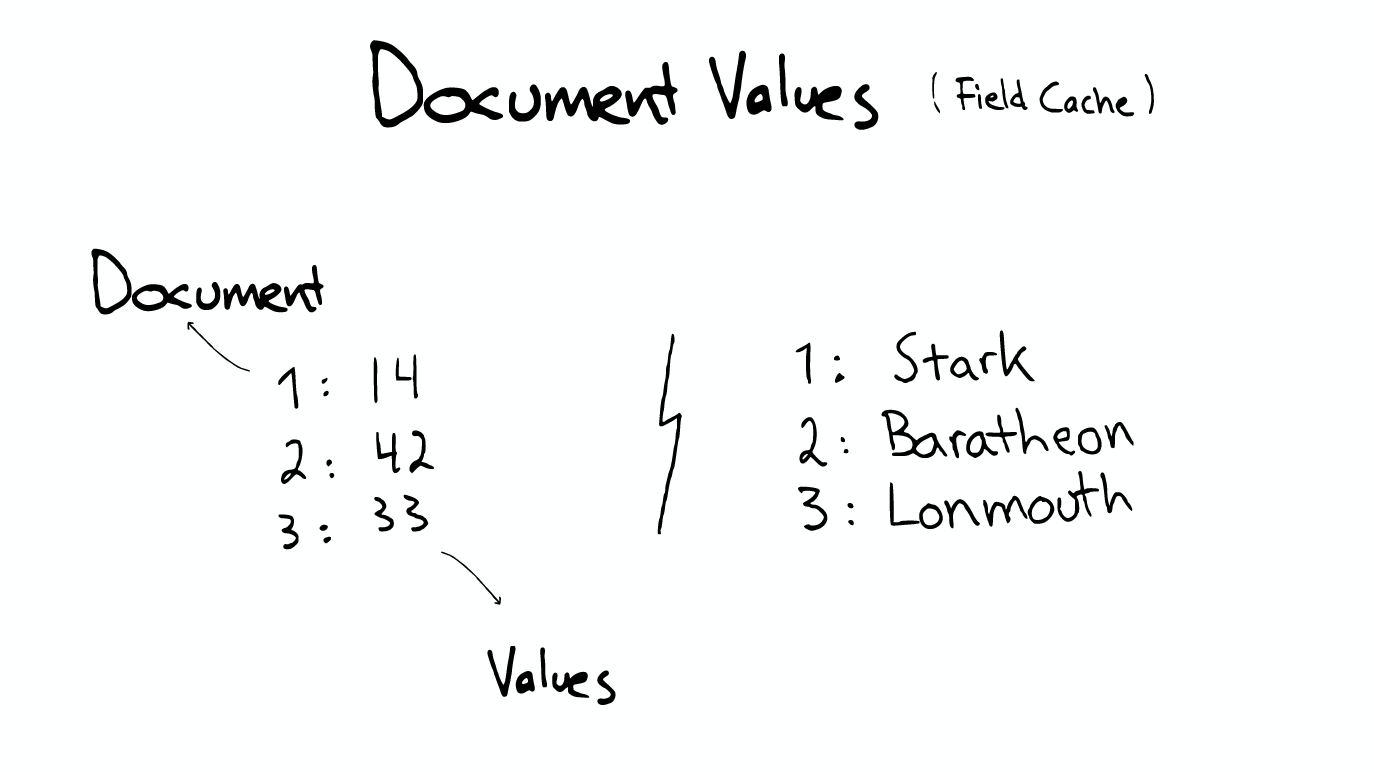 Document Values (Field Cache)
Document
1: 14
2: 42
3: 33
Values
1: Stark
2: Baratheon
3: Lonmouth